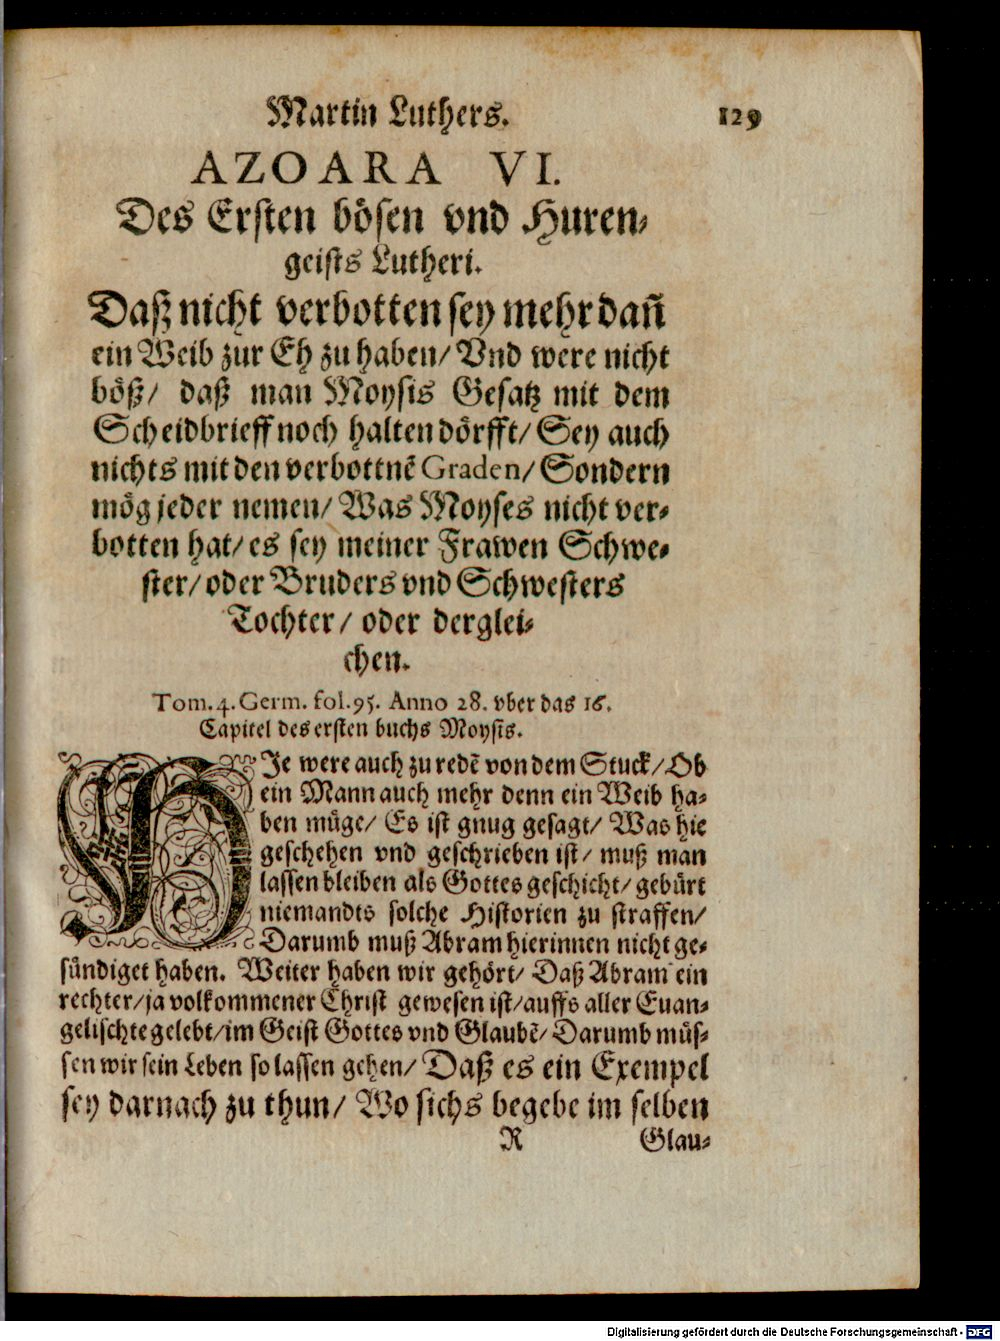 Martin Luthers. 129
AZOARA VI.
Des Ersten bösen vnd Huren-
geists Lutheri.
Daß nicht verbotten sey mehr dañ
ein Weib zur Eh zu haben/ Vnd were nicht
böß/ daß man Moysis Gesatz mit dem
Scheidbrieff noch halten dörfft/ Sey auch
nichts mit den verbottnē Graden/ Sondern
mög jeder nemen/ Was Moyses nicht ver-
botten hat/ es sey meiner Frawen Schwe-
ster/ oder Bruders vnd Schwesters
Tochter/ oder derglei-
chen.
Tom. 4. Germ. fol. 95. Anno 28. vber das 16.
Capitel des ersten buchs Moysis.
HIe were auch zu redē von dem Stuck/ Ob
ein Mann auch mehr denn ein Weib ha-
ben müge/ Es ist gnug gesagt/ Was hie
geschehen vnd geschrieben ist/ muß man
lassen bleiben als Gottes geschicht/ gebürt
niemandts solche Historien zu straffen/
Darumb muß Abram hierinnen nicht ge-
sündiget haben. Weiter haben wir gehört/ Daß Abram ein
rechter/ ja volkommener Christ gewesen ist/ auffs aller Euan-
gelischte gelebt/ im Geist Gottes vnd Glaubē/ Darumb müs-
sen wir sein Leben so lassen gehen/ Daß es ein Exempel
sey darnach zu thun/ Wo sichs begebe im selben
R Glau-
Digitalisierung gefördert durch die Deutsche Forschungsgemeinschaft - DFG